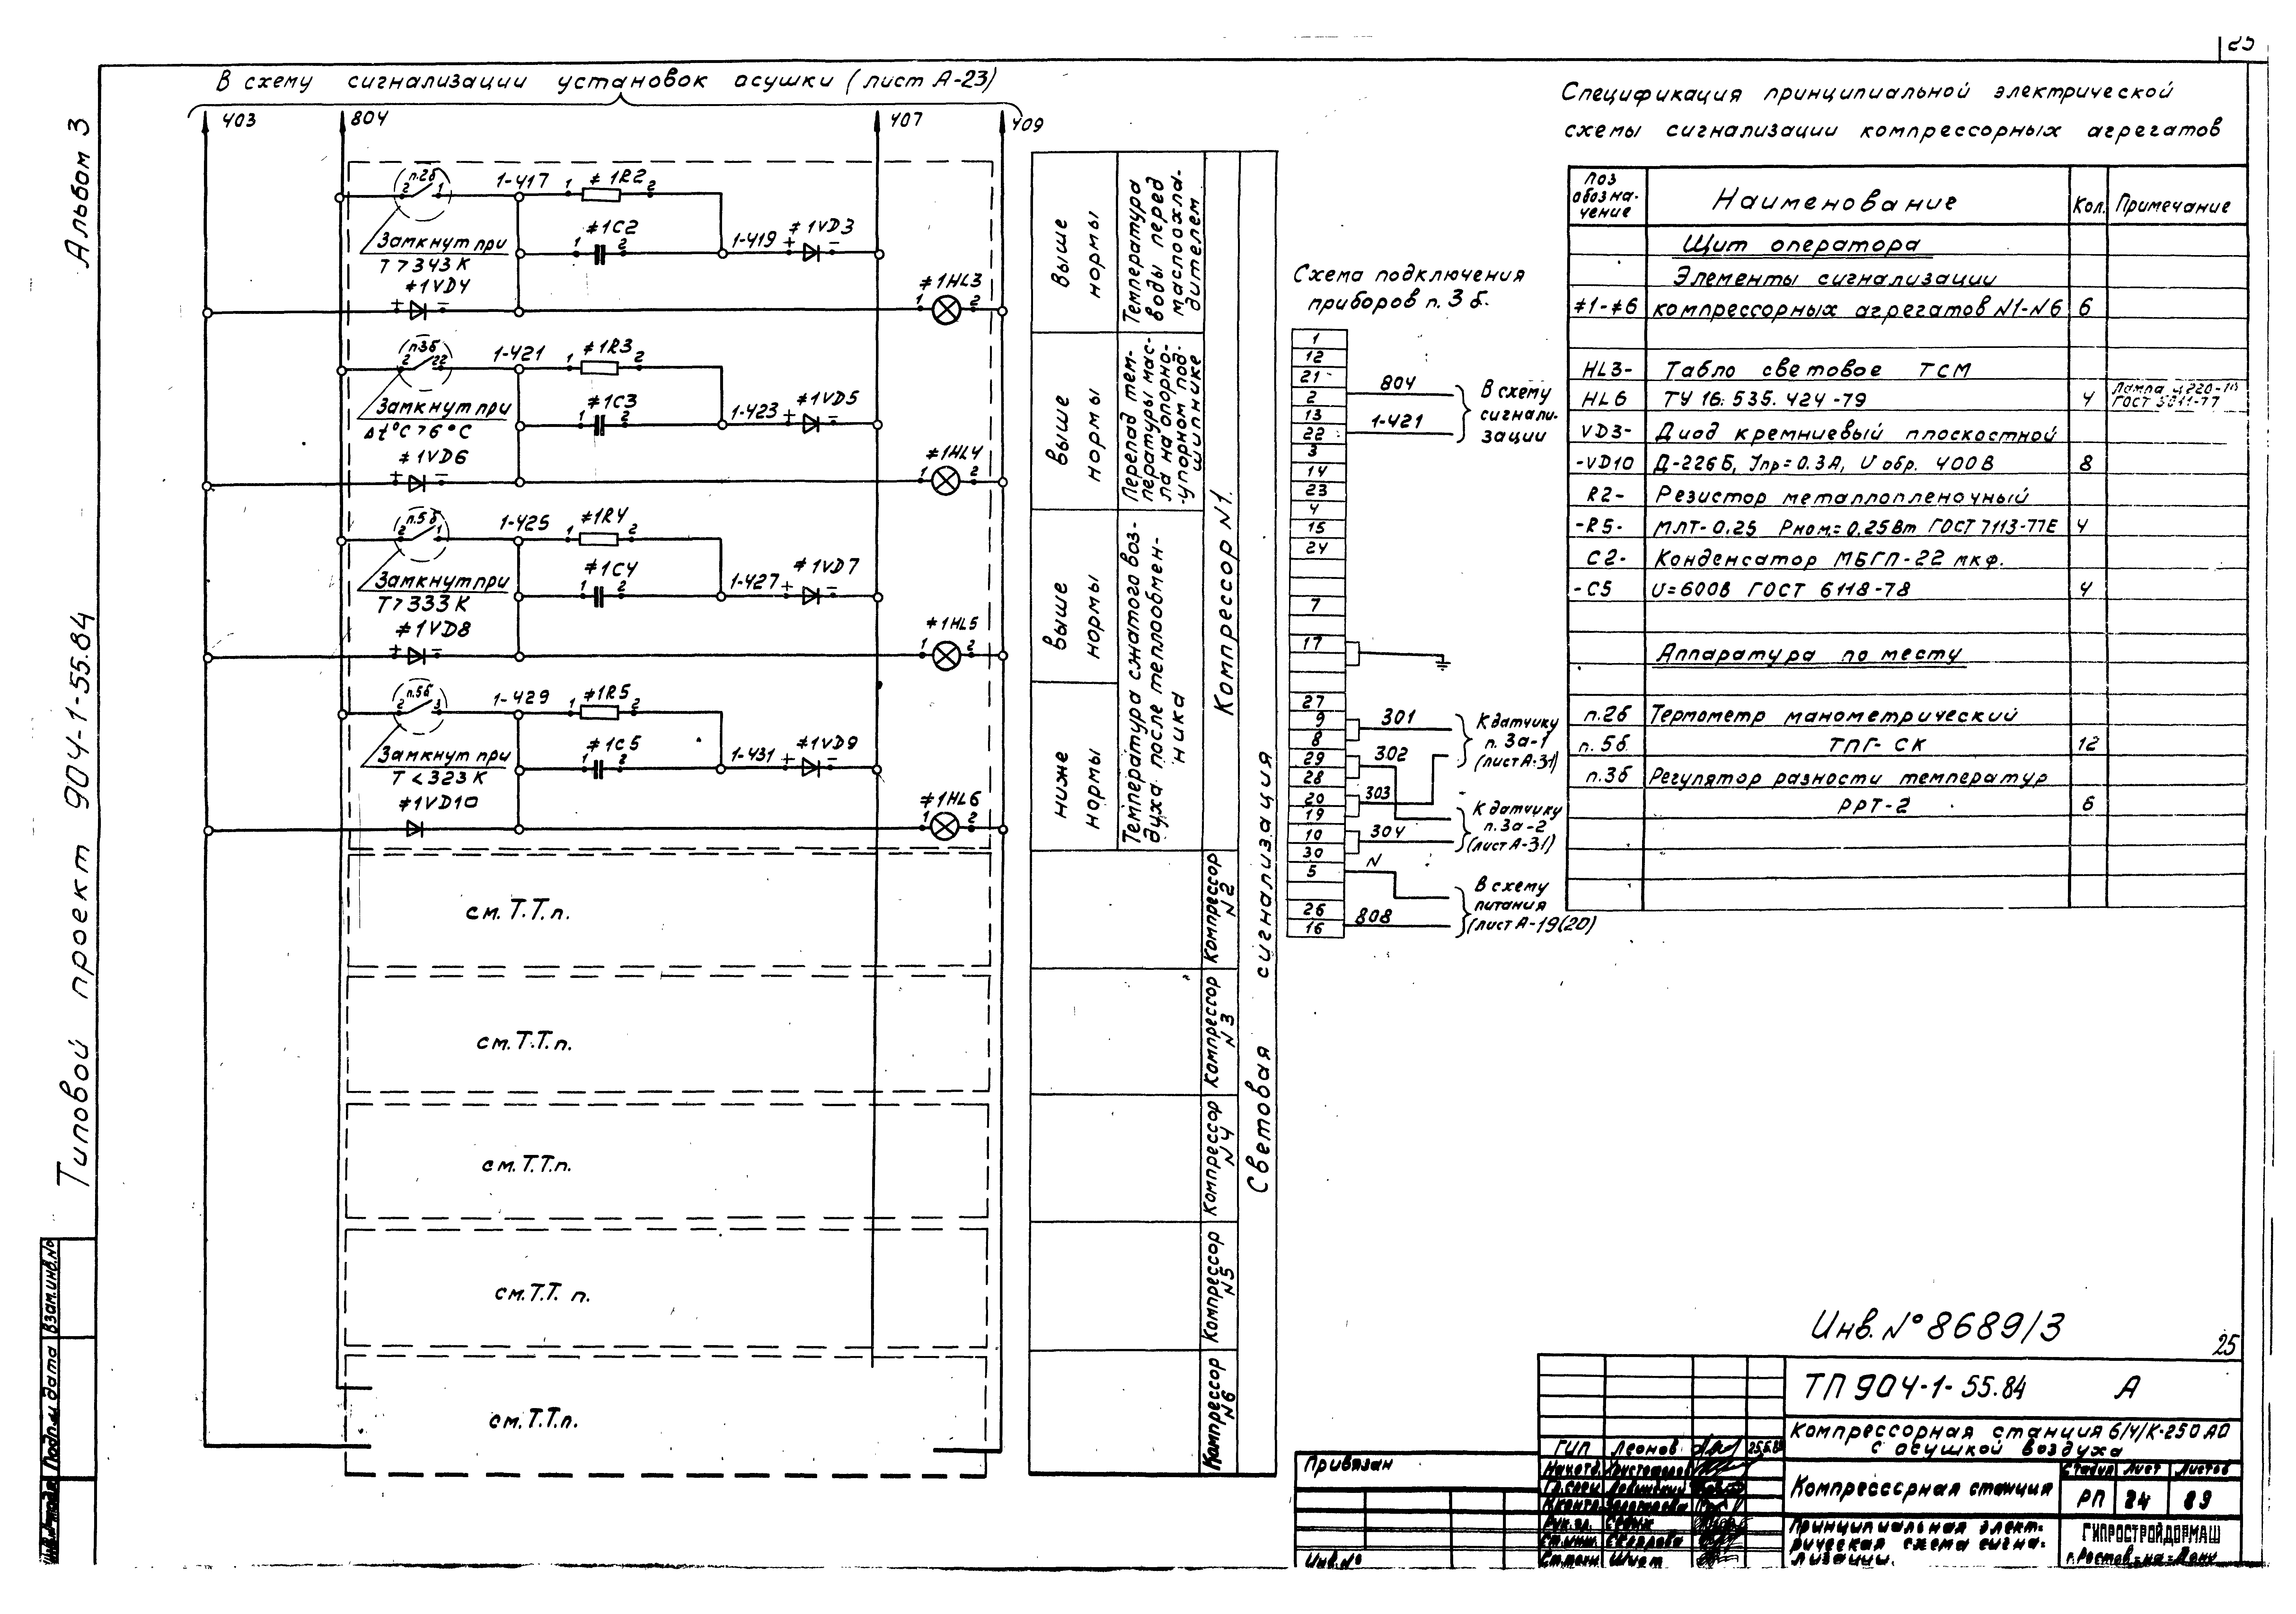 25
Альбом 3
Типовой проект 904-1-55.84
В схему сигнализации установок осушки (лист А-23)
403
804
407
409
п.2б
2 1
1-417
1 ≠1R2 2
Замкнут при
T > 343 K
≠1C2
1 2
1-419
≠1VD3
+ −
≠1VD4
+ −
≠1HL3
1 2
п.3б
2 22
1-421
1 ≠1R3 2
Замкнут при
Δt°C > 6°C
≠1C3
1 2
1-423
≠1VD5
+ −
≠1VD6
+ −
≠1HL4
1 2
п.5б
2 1
1-425
1 ≠1R4 2
Замкнут при
T > 333 K
≠1C4
1 2
1-427
≠1VD7
+ −
≠1VD8
+ −
≠1HL5
1 2
п.5б
2 3
1-429
1 ≠1R5 2
Замкнут при
T < 323 K
≠1C5
1 2
1-431
≠1VD9
+ −
≠1VD10
≠1HL6
1 2
см. Т.Т.п.
см. Т.Т.п.
см. Т.Т.п.
см. Т.Т. п.
см. Т.Т.п.
Выше
нормы
Температура
воды перед
маслоохла-
дителем
Выше
нормы
Перепад тем-
пературы мас-
ла на опорно-
-упорном под-
шипнике
Выше
нормы
Ниже
нормы
Температура сжатого воз-
духа после теплообмен-
ника
Компрессор N1.
Компрессор
N2
Компрессор
N3
Компрессор
N4
Компрессор
N5
Компрессор
N6
Световая сигнализация
Схема подключения
приборов п. 3 б.
1
12
21
2
13
22
3
14
23
4
15
24
7
17
27
9
8
29
28
20
19
10
30
5
26
16
804
1-421
В схему
сигнали-
зации
301
302
303
304
N
808
К датчику
п. 3а-1
(лист А-31)
К датчику
п. 3а-2
(лист А-31)
В схему
питания
(лист А-19(20)
Спецификация принципиальной электрической
схемы сигнализации компрессорных агрегатов
Поз
обозна-
чение
Наименование
Кол.
Примечание
Щит оператора
Элементы сигнализации
≠1-≠6 компрессорных агрегатов N1-N6 6
HL3- Табло световое ТСМ
HL6 ТУ 16. 535. 424-79 4
VD3- Диод кремниевый плоскостной
-VD10 Д-226Б, Jпр=0.3А, U обр. 400В 8
R2- Резистор металлопленочный
-R5- МЛТ-0.25 Рном.=0,25Вт ГОСТ 7113-77Е 4
C2- Конденсатор МБГП-22 мкф.
-C5 U=600В ГОСТ 6118-78 4
Аппаратура по месту
п.2б Термометр манометрический
п. 5б. ТПГ-СК 12
п.3б Регулятор разности температур
РРТ-2 6
Инв. N° 8689/3
25
ТП 904-1-55.84 А
Компрессорная станция 6/4/К-250 АО
с осушкой воздуха
ГИП Леонов
Компрессорная станция
Стадия Лист Листов
РП 24 89
Принципиальная элект-
рическая схема сигна-
лизации.
ГИПРОСТРОЙДОРМАШ
г. Ростов-на-Дону
Привязан
Инв. N°
Взам. инв. N°
Подпись и дата